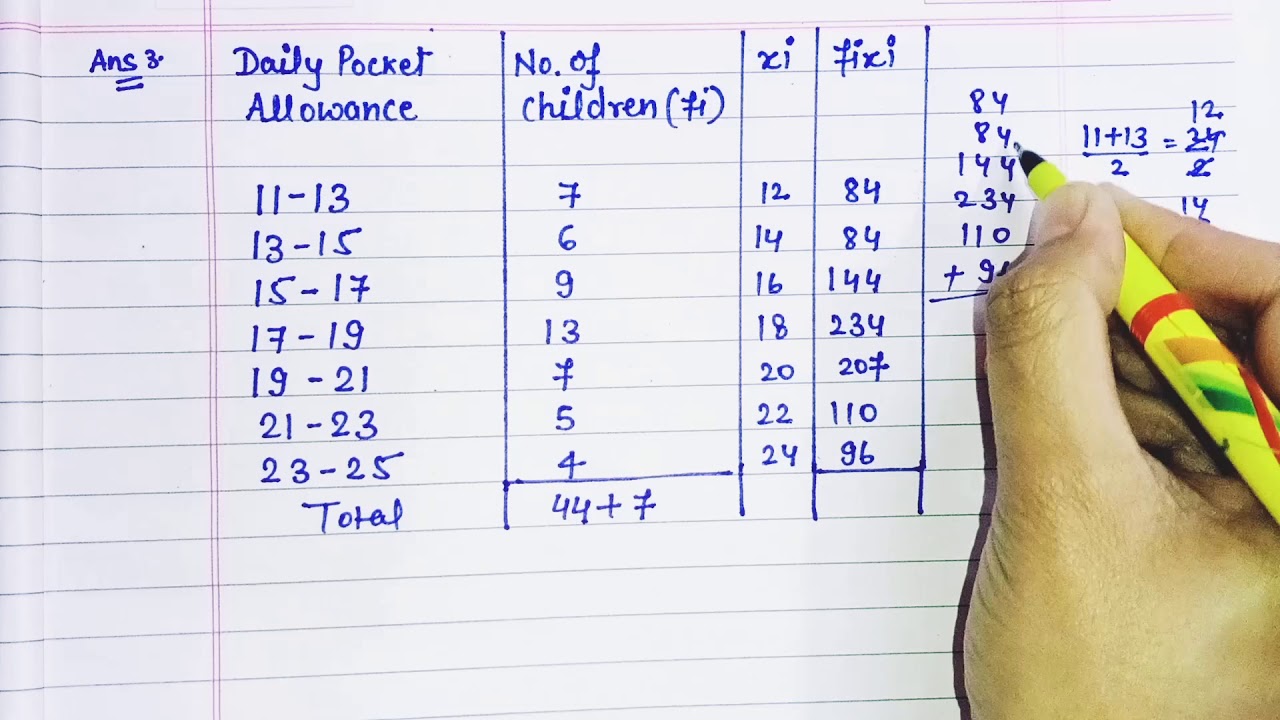 Ans 3.
Daily Pocket Allowance
No. of children (fi)
xi
fixi
11-13 7 12 84
13-15 6 14 84
15-17 9 16 144
17-19 13 18 234
19-21 f 20 20f
21-23 5 22 110
23-25 4 24 96
Total 44+f
84
84
144
234
110
+ 9
12
11+13 = 24
2 2
14